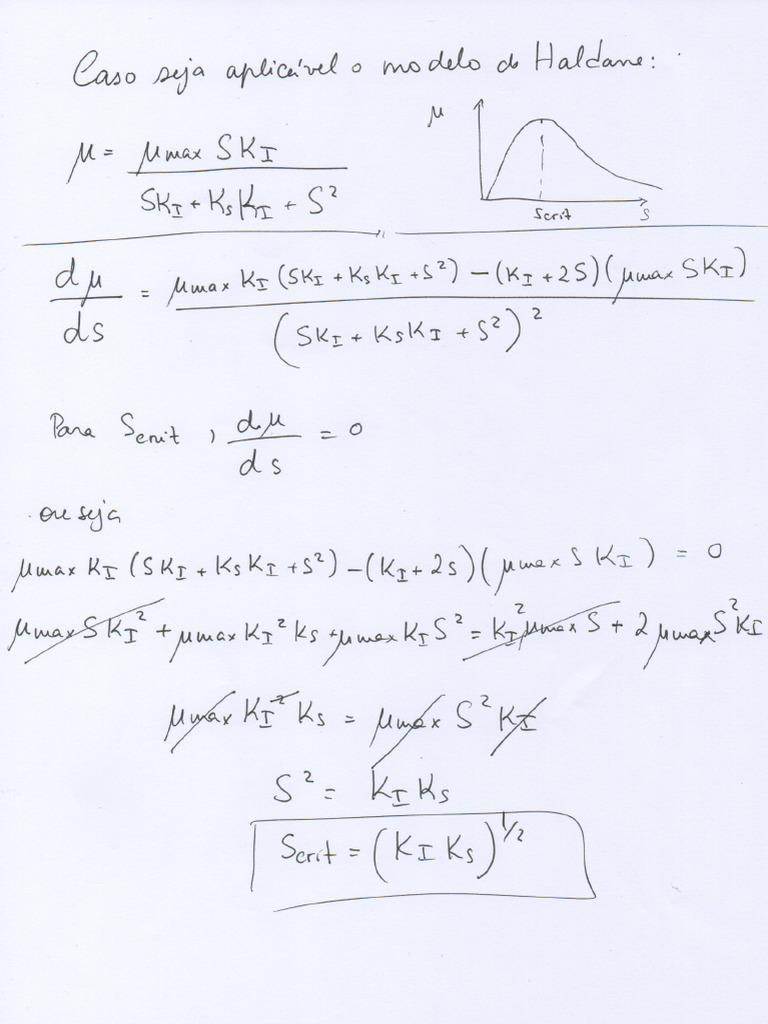 Caso seja aplicável o modelo de Haldane:
μ = μmax S K_I / (SK_I + K_S K_I + S²)
μ
Scrit
S
dμ/ds = (μmax K_I (SK_I + K_S K_I + S²) – (K_I + 2S)(μmax S K_I)) / (SK_I + K_S K_I + S²)²
Para Scrit, dμ/ds = 0
ou seja
μmax K_I (S K_I + K_S K_I + S²) – (K_I + 2S)(μmax S K_I) = 0
μmax S K_I² + μmax K_I² K_S + μmax K_I S² = K_I² μmax S + 2 μmax S² K_I
μmax K_I² K_S = μmax S² K_I
S² = K_I K_S
Scrit = (K_I K_S)^1/2